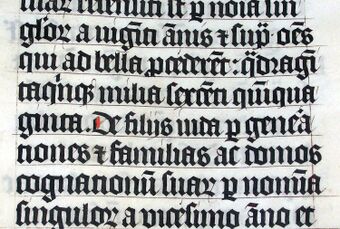 suaꝝ recensiti st̄ ꝑ noīa sin
guloꝝ a uigīti ānis ⁊ sup̄ oēs
qui ad bella ꝓcederēt: q̄dragī
taquīqꝫ milia sexcēti quīqua
ginta. De filiis iuda ꝑ geneā
tiones ⁊ familias ac domos
cognationū suaꝝ ꝑ nomīa
singuloꝝ a uicesimo āno et